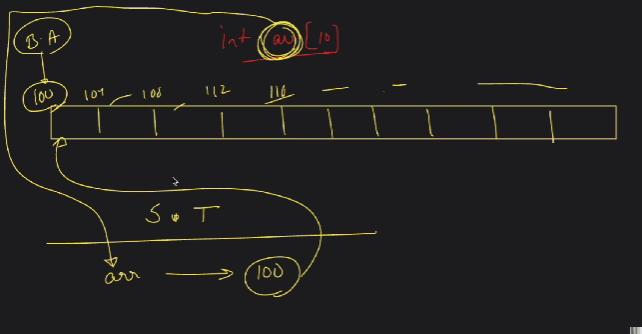 B.A
int arr[10]
100 104 108 112 116
S.T
arr → 100